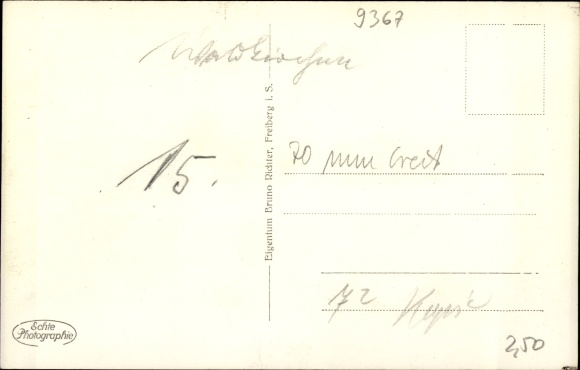 9367
Waldkirchen
Eigentum Bruno Richter, Freiberg i. S.
70 mm breit
15.
72
Echte
Photographie
2,50